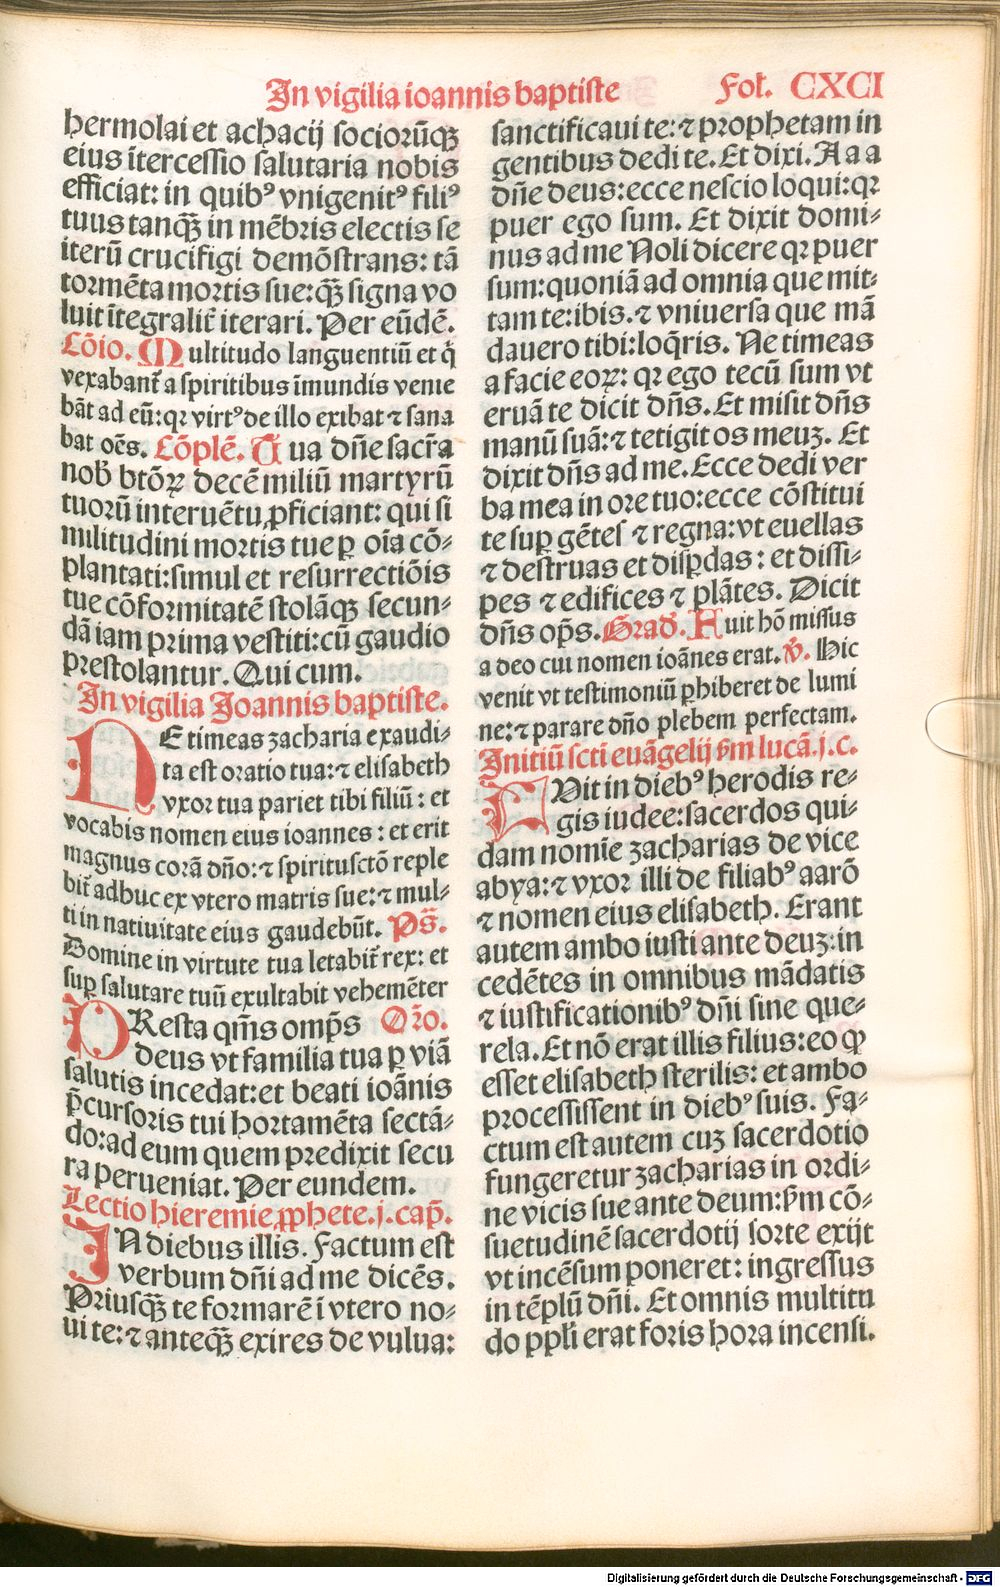 In vigilia ioannis baptiste Fol. CXCI
hermolai et achacij socioꝝ̄qꝫ
eius ītercessio salutaria nobis
efficiat: in quibꝰ vnigenitꝰ filiꝰ
tuus tanqꝫ̄ in mēbris electis se
iterū crucifigi demōstrans: tā
tormēta mortis sue: qꝫ̄ signa vo
luit ītegralit̄ iterari. Per eūdē.
Cōio. Multitudo languentiū et q̇
vexabant̄ a spiritibus īmundis venie
bāt ad eū: qꝛ virtꝰ de illo exibat ⁊ sana
bat oēs. Cōplē. Tua dn̄e sacr̄a
nob̄ btōꝝ decē miliū martyrū
tuorū interuētu ꝓficiant: qui si
militudini mortis tue ꝑ oīa cō-
plantati: simul et resurrectiōis
tue cōformitatē stolāqꝫ secun-
dā iam prima vestiti: cū gaudio
prestolantur. Qui cum.
In vigilia Joannis baptiste.
NE timeas zacharia exaudi-
ta est oratio tua: ⁊ elisabeth
vxor tua pariet tibi filiū: et
vocabis nomen eius ioannes: et erit
magnus corā dn̄o: ⁊ spiritu sctō reple
bit̄ adhuc ex vtero matris sue: ⁊ mul-
ti in natiuitate eius gaudebūt. Ps̄.
Domine in virtute tua letabit̄ rex: et
suꝑ salutare tuū exultabit vehemēter
PResta qm̄s omp̄s Or̄o.
deus vt familia tua ꝑ viā
salutis incedat: et beati ioānis
p̄cursoris tui hortamēta sectā-
do: ad eum quem predixit secu
ra perueniat. Per eundem.
Lectio hieremie ꝓphete. j. cap̄.
IN diebus illis. Factum est
verbum dn̄i ad me dicēs.
Priusqꝫ̄ te formarē ī vtero no-
ui te: ⁊ anteqꝫ̄ exires de vulua:
sanctificaui te: ⁊ prophetam in
gentibus dedi te. Et dixi. A a a
dn̄e deus: ecce nescio loqui: qꝛ
puer ego sum. Et dixit domi-
nus ad me Noli dicere qꝛ puer
sum: quoniā ad omnia que mit-
tam te: ibis. ⁊ vniuersa que mā
dauero tibi: loq̄ris. Ne timeas
a facie eoꝝ: qꝛ ego tecū sum vt
eruā te dicit dn̄s. Et misit dn̄s
manū suā: ⁊ tetigit os meuꝫ. Et
dixit dn̄s ad me. Ecce dedi ver
ba mea in ore tuo: ecce cōstitui
te suꝑ gētes ⁊ regna: vt euellas
⁊ destruas et disꝑdas: et dissi-
pes ⁊ edifices ⁊ plātes. Dicit
dn̄s op̄s. Grad̄. Fuit hō missus
a deo cui nomen ioānes erat. v̄. Hic
venit vt testimoniū ꝑhiberet de lumi
ne: ⁊ parare dn̄o plebem perfectam.
Initiū scti euāgelij ẜm lucā. j. c.
FVit in diebꝰ herodis re-
gis iudee: sacerdos qui-
dam nomīe zacharias de vice
abya: ⁊ vxor illi de filiabꝰ aarō
⁊ nomen eius elisabeth. Erant
autem ambo iusti ante deuꝫ: in
cedētes in omnibus mādatis
⁊ iustificationibꝰ dn̄i sine que-
rela. Et nō erat illis filius: eo ꝙ
esset elisabeth sterilis: et ambo
processissent in diebꝰ suis. Fa-
ctum est autem cuꝫ sacerdotio
fungeretur zacharias in ordi-
ne vicis sue ante deum: ẜm cō-
suetudinē sacerdotij sorte exijt
vt incēsum poneret: ingressus
in tēplū dn̄i. Et omnis multitu
do ppl̄i erat foris hora incensi.
Digitalisierung gefördert durch die Deutsche Forschungsgemeinschaft - DFG